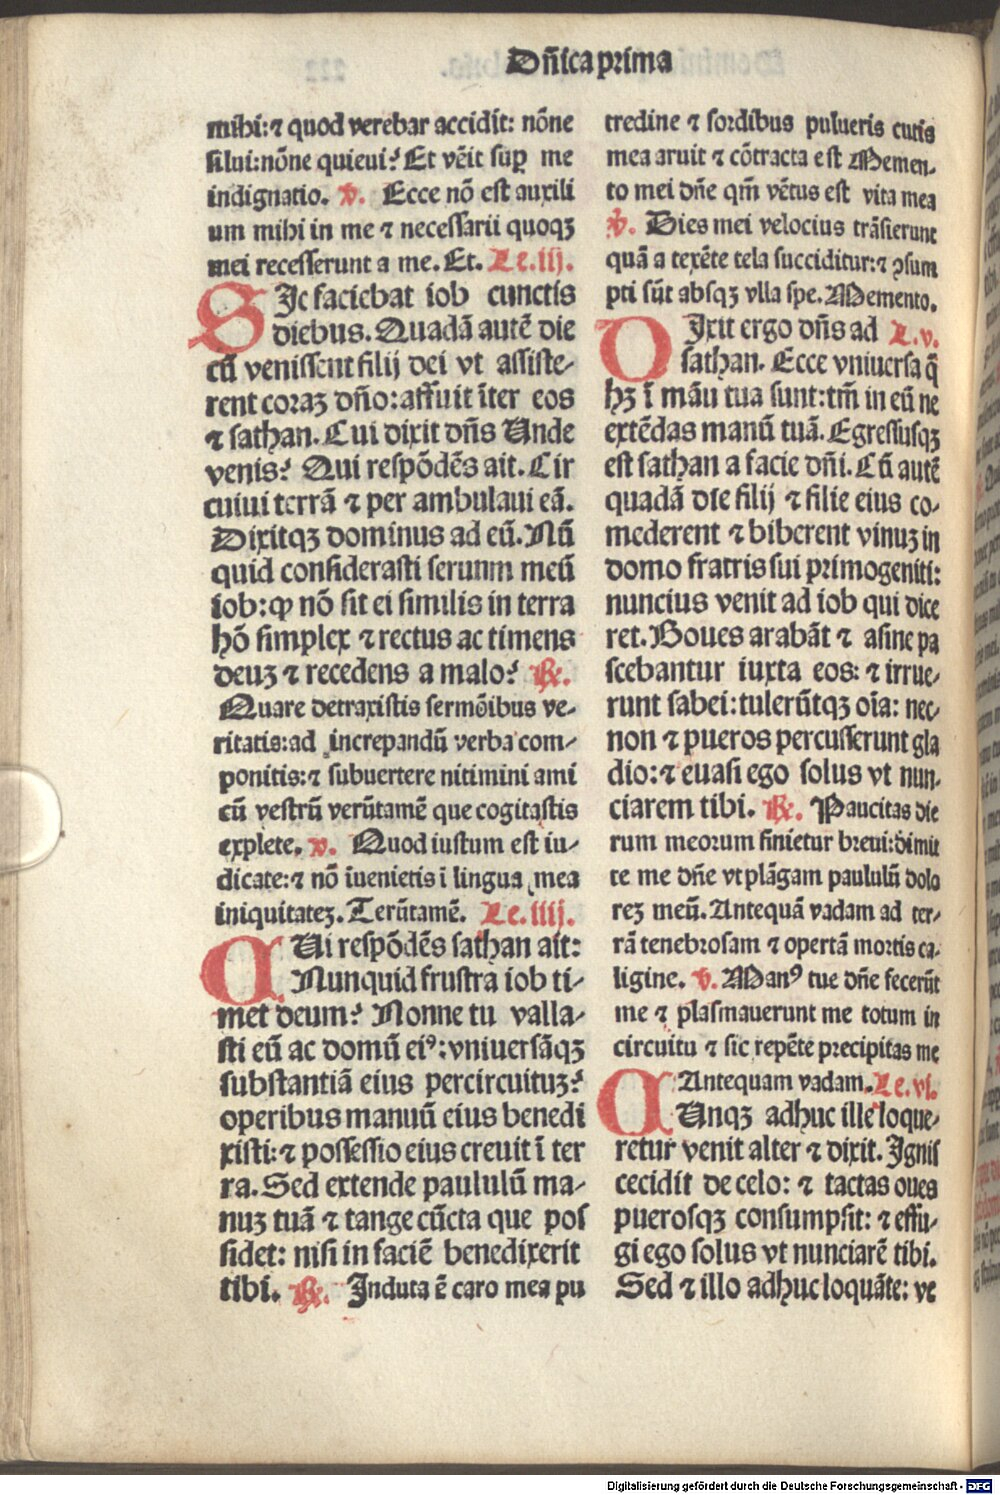 Dñica prima
mihi: ⁊ quod verebar accidit: nõne
silui: nõne quieui? Et vẽit suꝑ me
indignatio. ℣. Ecce nõ est auxili
um mihi in me ⁊ necessarii quoqꝫ
mei recesserunt a me. Et. Le.iij.
SIc faciebat iob cunctis
diebus. Quadã autẽ die
cũ venissent filij dei vt assiste-
rent coraꝫ dño: affuit ĩter eos
⁊ sathan. Cui dixit dñs Unde
venis? Qui respõdẽs ait. Cir
cuiui terrã ⁊ per ambulaui eã.
Dixitqꝫ dominus ad eũ. Nũ
quid considerasti seruum meũ
iob: ꝙ nõ sit ei similis in terra
hõ simplex ⁊ rectus ac timens
deuꝫ ⁊ recedens a malo? ℟.
Quare detraxistis sermõibus ve-
ritatis: ad increpandũ verba com-
ponitis: ⁊ subuertere nitimini ami
cũ vestrũ verũtamẽ que cogitastis
explete. ℣. Quod iustum est iu-
dicate: ⁊ nõ iuenietis i lingua mea
iniquitateꝫ. Terũtamẽ. Le.iiij.
QUi respõdẽs sathan ait:
Nunquid frustra iob ti-
met deum? Nonne tu valla-
sti eũ ac domũ eiꝰ: vniuersãqꝫ
substantiã eius percircuituꝫ?
operibus manuũ eius benedi
xisti: ⁊ possessio eius creuit ĩ ter
ra. Sed extende paululũ ma-
nuꝫ tuã ⁊ tange cũcta que pos
sidet: nisi in faciẽ benedixerit
tibi. ℟. Induta ẽ caro mea pu
tredine ⁊ sordibus pulueris cutis
mea aruit ⁊ cõtracta est Memen-
to mei dñe qm̃ vẽtus est vita mea
℣. Dies mei velocius trãsierunt
quã a texẽte tela succiditur: ⁊ ꝯsum
pti sũt absqꝫ vlla spe. Memento.
DIxit ergo dñs ad Le.v.
sathan. Ecce vniuersa q̃
hꝫ ĩ mãu tua sunt: tm̃ in eũ ne
extẽdas manũ tuã. Egressusqꝫ
est sathan a facie dñi. Cũ autẽ
quadã die filij ⁊ filie eius co-
mederent ⁊ biberent vinuꝫ in
domo fratris sui primogeniti:
nuncius venit ad iob qui dice
ret. Boues arabãt ⁊ asine pa
scebantur iuxta eos: ⁊ irrue-
runt sabei: tulerũtqꝫ oĩa: nec-
non ⁊ pueros percusserunt gla
dio: ⁊ euasi ego solus vt nun-
ciarem tibi. ℟. Paucitas die
rum meorum finietur breui: dimit
te me dñe vt plãgam paululũ dolo
reꝫ meũ. Antequã vadam ad ter-
rã tenebrosam ⁊ opertã mortis ca-
ligine. ℣. Manꝰ tue dñe fecerũt
me ⁊ plasmauerunt me totum in
circuitu ⁊ sic repẽte precipitas me
Antequam vadam. Le.vi.
CUnqꝫ adhuc ille loque-
retur venit alter ⁊ dixit. Ignis
cecidit de celo: ⁊ tactas oues
puerosqꝫ consumpsit: ⁊ effu-
gi ego solus vt nunciarẽ tibi.
Sed ⁊ illo adhuc loquãte: ve
Digitalisierung gefördert durch die Deutsche Forschungsgemeinschaft - DFG